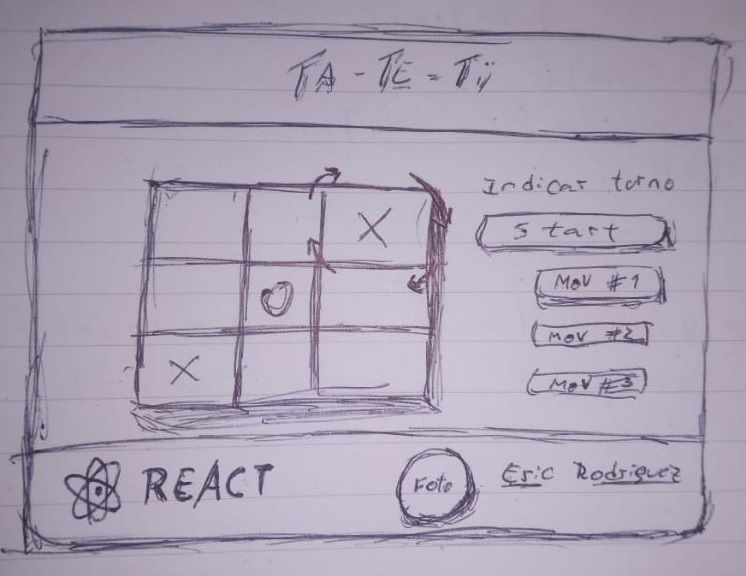 TA-TE=Ti
Indicar turno
X
Start
O
Mov #1
Mov #2
X
Mov #3
REACT
Foto
Eric Rodriguez